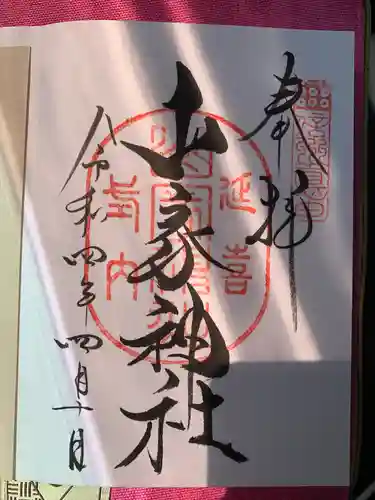 奉拝
延喜
山家神社
式内
令和四年四月十日